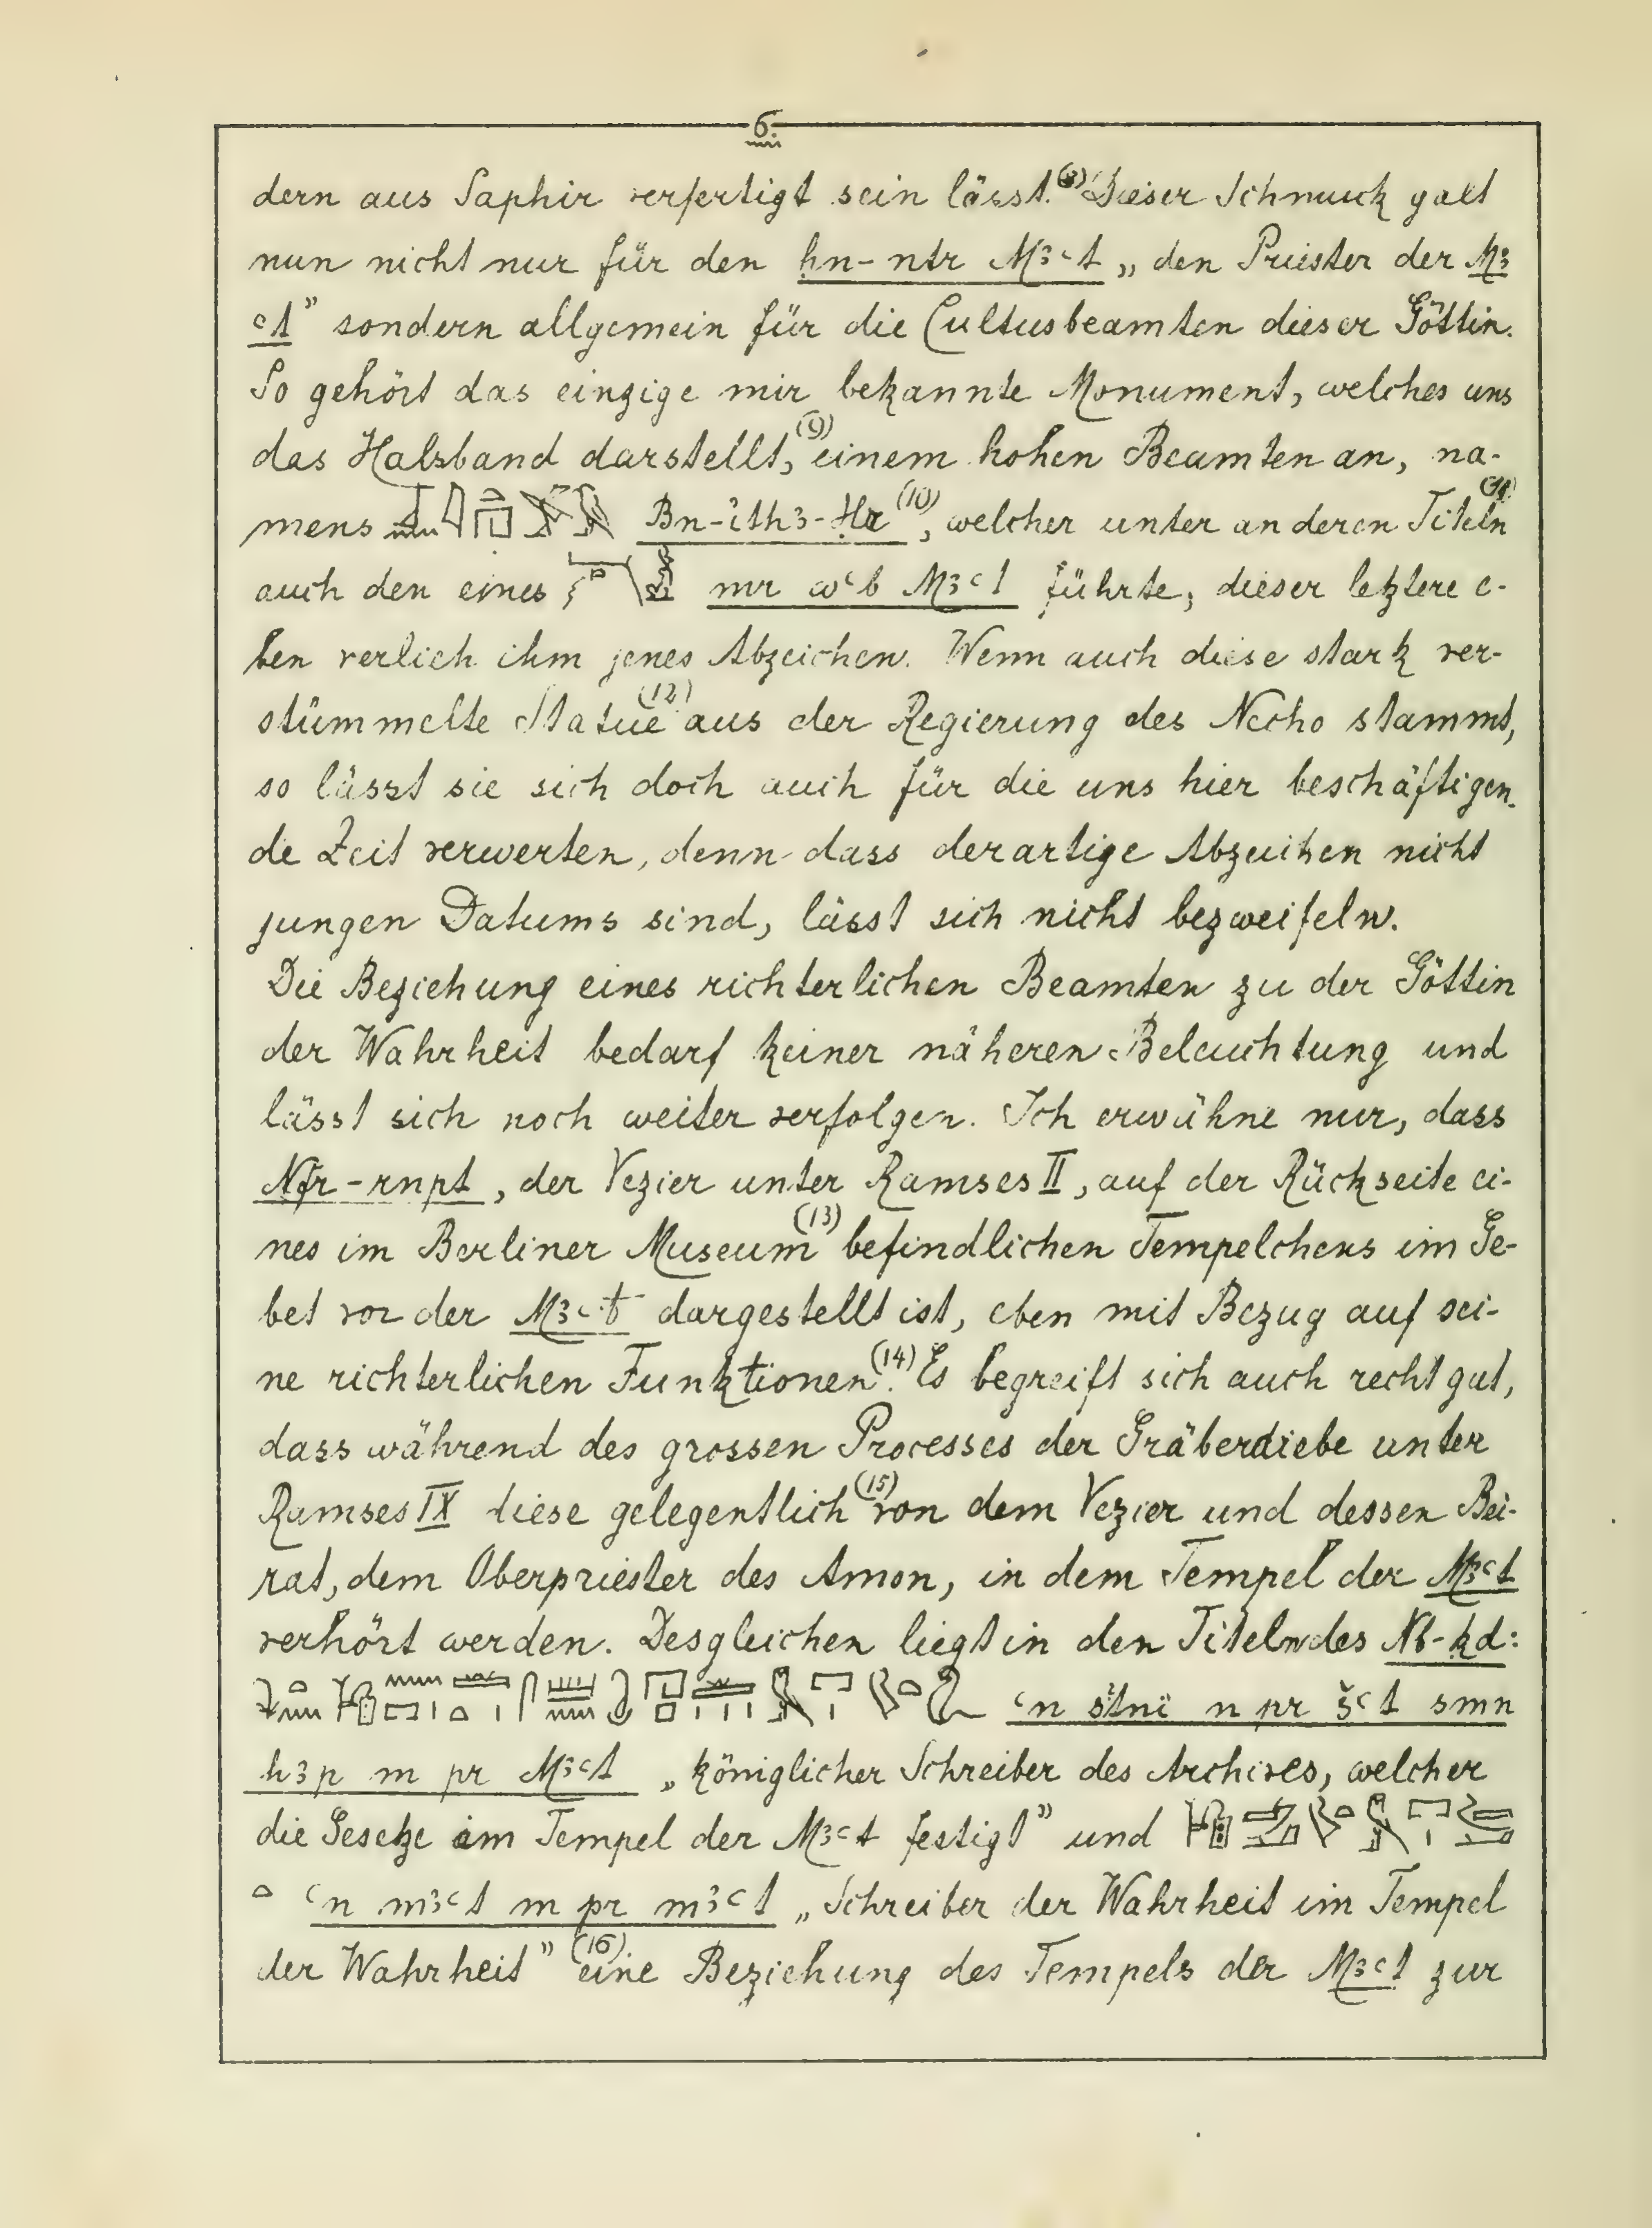 6.
dern aus Saphir verfertigt sein lässt.(8) Dieser Schmuck galt
nun nicht nur für den ḥn-ntr Mꜣꜥt „den Priester der Mꜣ
ꜥt” sondern allgemein für die Cultusbeamten dieser Göttin.
So gehört das einzige mir bekannte Monument, welches uns
das Halsband darstellt,(9) einem hohen Beamten an, na-
mens Bn-ithꜣ-Ḥr(10), welcher unter anderen Titeln(11)
auch den eines mr wꜥb Mꜣꜥt führte, dieser letztere e-
ben verlieh ihm jenes Abzeichen. Wenn auch diese stark ver-
stümmelte Statue(12) aus der Regierung des Necho stammt,
so lässt sie sich doch auch für die uns hier beschäftigen-
de Zeit verwerten, denn dass derartige Abzeichen nicht
jungen Datums sind, lässt sich nicht bezweifeln.
Die Beziehung eines richterlichen Beamten zu der Göttin
der Wahrheit bedarf keiner näheren Beleuchtung und
lässt sich noch weiter verfolgen. Ich erwähne nur, dass
Nfr-rnpt, der Vezier unter Ramses II, auf der Rückseite ei-
nes im Berliner Museum(13) befindlichen Tempelchens im Ge-
bet vor der Mꜣꜥt dargestellt ist, eben mit Bezug auf sei-
ne richterlichen Funktionen(14). Es begreift sich auch recht gut,
dass während des grossen Processes der Gräberdiebe unter
Ramses IX diese gelegentlich(15) von dem Vezier und dessen Bei-
rat, dem Oberpriester des Amon, in dem Tempel der Mꜣꜥt
verhört werden. Desgleichen liegt in den Titeln des Nb-ḳd:
ꜥn štni n pr šꜥt smn
hꜣp m pr Mꜣꜥt „königlicher Schreiber des Archives, welcher
die Gesetze im Tempel der Mꜣꜥt festigt” und
ꜥn mꜣꜥt m pr mꜣꜥt „Schreiber der Wahrheit im Tempel
der Wahrheit”(16) eine Beziehung des Tempels der Mꜣꜥt zur